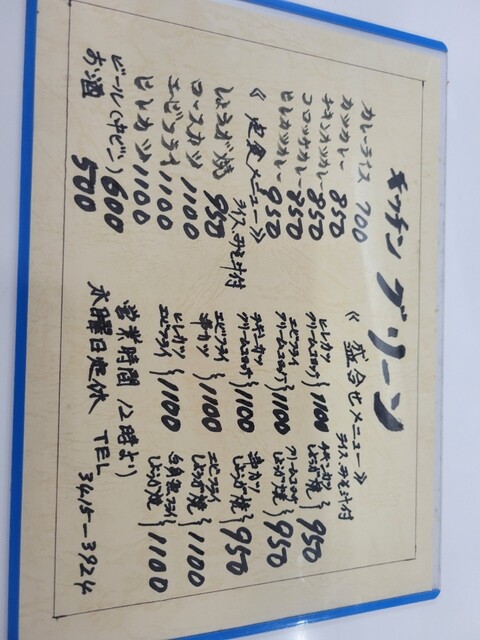 キッチン グリーン
カレーライス 700
カツカレー 850
チキンカツカレー 850
コロッケカレー 850
ヒレカツカレー 950
《定食メニュー》
ライス、みそ汁付
しょうが焼 950
ロースカツ 1100
エビフライ 1100
ヒレカツ 1100
ビール(中ビン) 600
お酒 500
《盛合せメニュー》
ライス、みそ汁付
ヒレカツ
クリームコロッケ } 1100
エビフライ
クリームコロッケ } 1100
チキンカツ
クリームコロッケ } 1100
エビフライ
串カツ } 1100
ヒレカツ
エビフライ } 1100
チキンカツ
しょうが焼 } 950
クリームコロッケ
しょうが焼 } 950
串カツ
しょうが焼 } 950
エビフライ
しょうが焼 } 1100
白身魚フライ
しょうが焼 } 1100
営業時間 12時より
水曜日定休 TEL 3415-3924